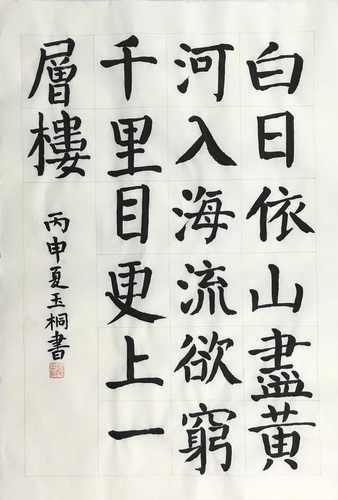 白日依山盡黃
河入海流欲窮
千里目更上一
層樓
丙申夏玉桐書